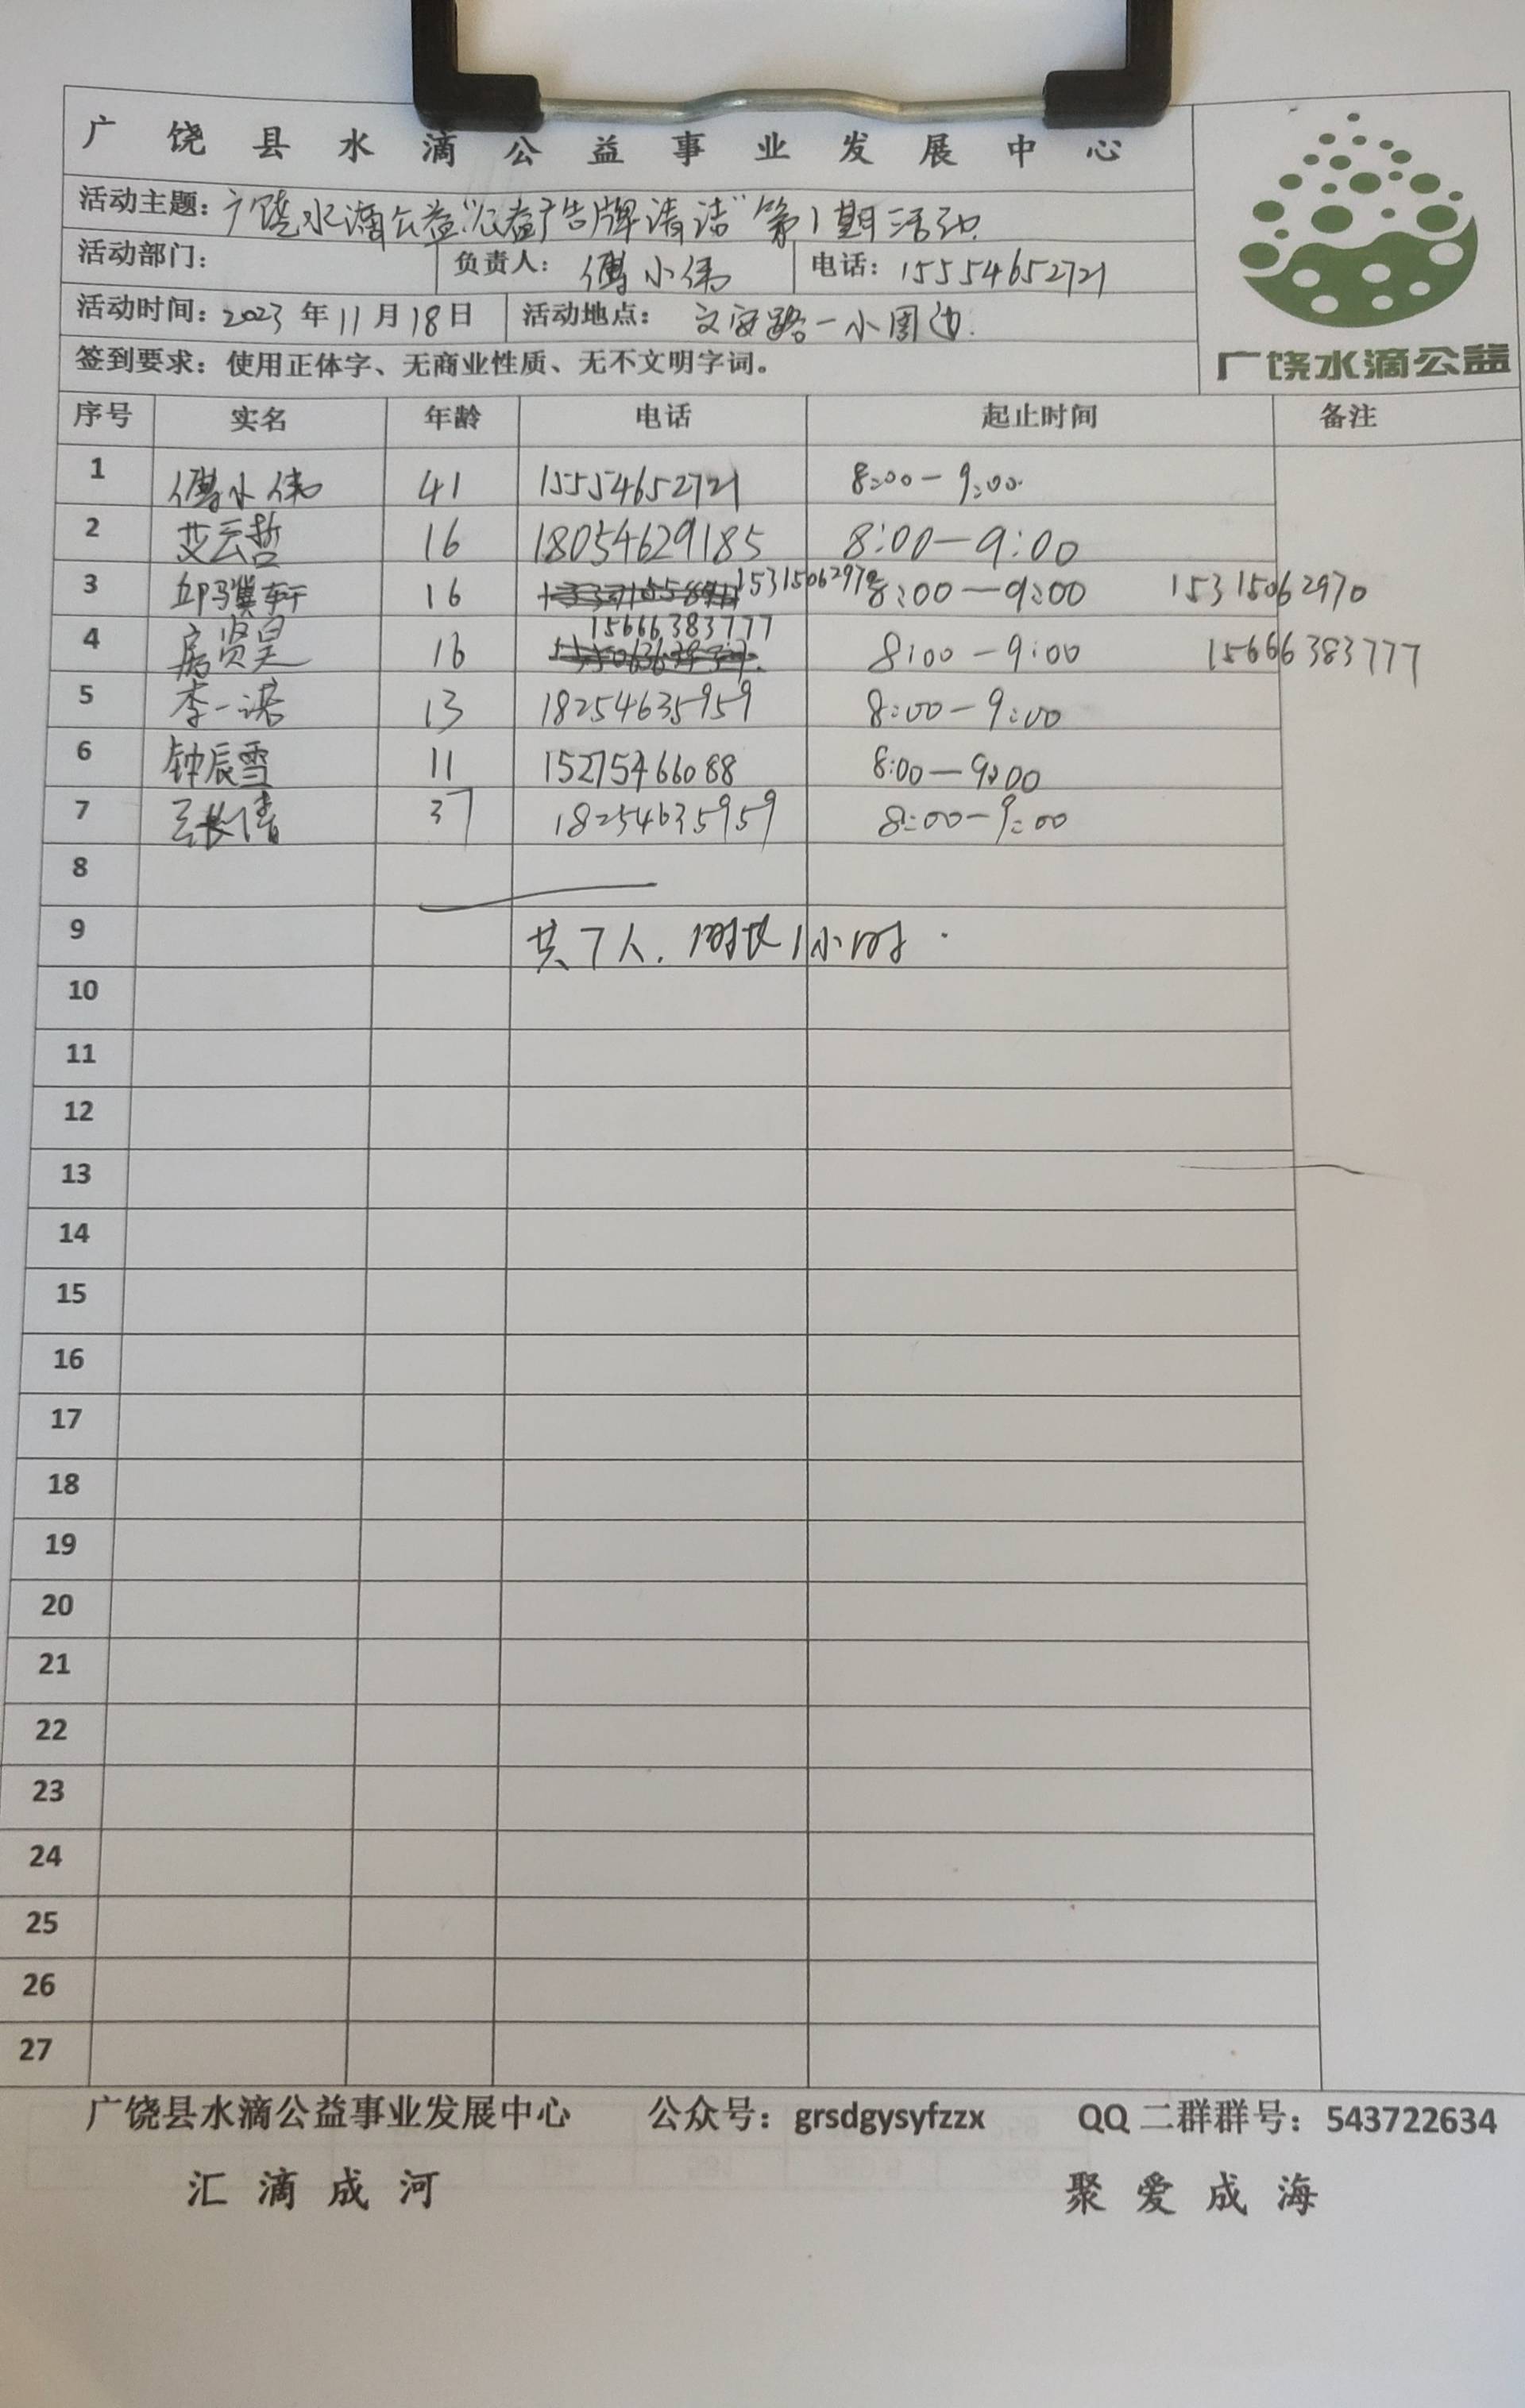 广饶县水滴公益事业发展中心
活动主题：广饶水滴公益“公益广告牌清洁”第1期活动.
活动部门： 负责人：傅小伟 电话：15554652721
活动时间：2023年11月18日 活动地点：文安路一小周边.
签到要求：使用正体字、无商业性质、无不文明字词。
广饶水滴公益
序号 实名 年龄 电话 起止时间 备注
1 傅小伟 41 15554652721 8:00-9:00
2 艾云哲 16 18054629185 8:00-9:00
3 邱骥轩 16 15315062970 8:00-9:00 15315062970
4 房贤昊 16 15666383777 8:00-9:00 15666383777
5 李一诺 13 18254635959 8:00-9:00
6 钟辰雪 11 15275466088 8:00-9:00
7 37 18254635959 8:00-9:00
8
9 共7人. 时长1小时.
10
11
12
13
14
15
16
17
18
19
20
21
22
23
24
25
26
27
广饶县水滴公益事业发展中心 公众号：grsdgysyfzzx QQ二群群号：543722634
汇滴成河 聚爱成海